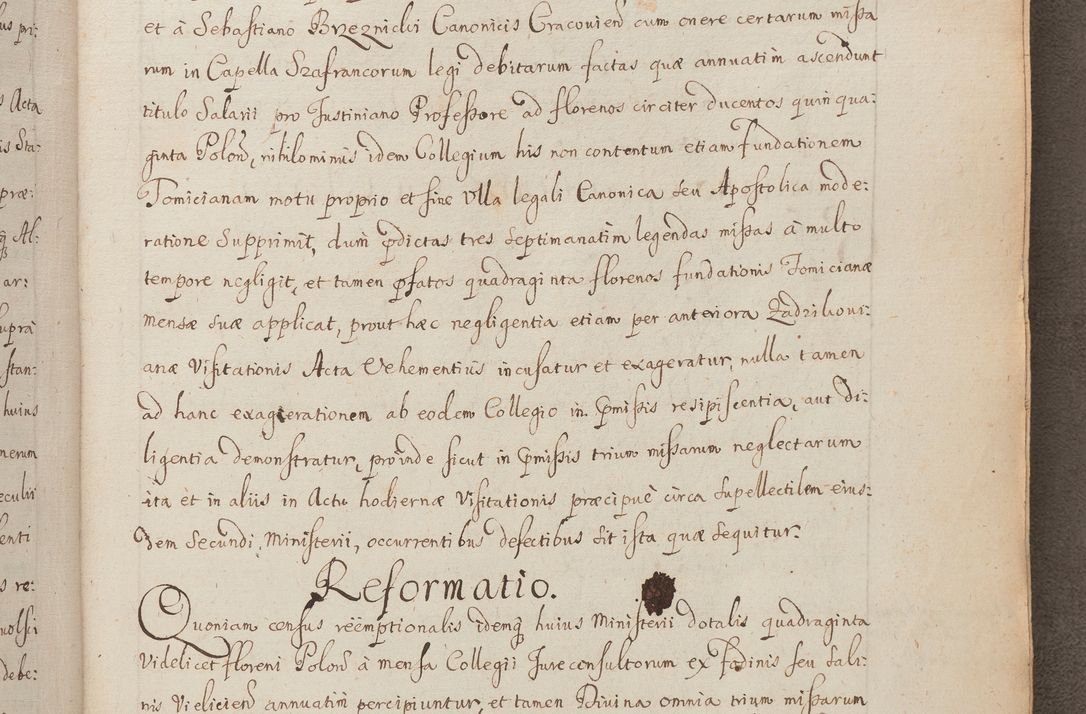 et à Sebastiano Brzeznicki Canonicis Cracovień cum onere certarum missa
rum in Capella Szafrancorum legi debitarum factas quæ annuatim ascendunt
titulo Salarii pro Justiniano Professore ad florenos circiter ducentos quin qua:
ginta Poloń, nihilominus idem Collegium his non contentum etiam Fundationem
Tomicianam motu proprio et sine Ulla legali Canonica seu Apostolica mode:
ratione Supprimit, dum pdictas tres Septimanatim legendas missas à multo
tempore negligit, et tamen pfatos quadraginta florenos fundationis Tomicianæ
Mensæ suæ applicat, prout hæc negligentia etiam per anteriora Zadzikovi:
anæ Visitationis Acta Vehementius incusatur et exageratur, nulla tamen
ad hanc exagerationem ab eodem Collegio in pmissis resipiscentia, aut di:
ligentia demonstratur, proinde sicut in pmissis trium missarum neglectarum
ita et in aliis in Actu hodiernæ Visitationis præcipuè circa Supellectilem eius:
dem Secundi Ministerii, occurrentibus defectibus sit ista quæ sequitur.
Reformatio.
Quoniam census reëmptionalis idemq huius Ministerii dotalis quadraginta
Videlicet floreni Poloń à mensa Collegii Jureconsultorum ex Fodinis seu Sali:
nis Vielicień annuatim percipiuntur, et tamen Divina omnia trium missarum
us pri:
Acta
is Sta:
præ:
Al:
ar:
supra
stan:
huius
nerum
eculii
enti
s re:
debe: